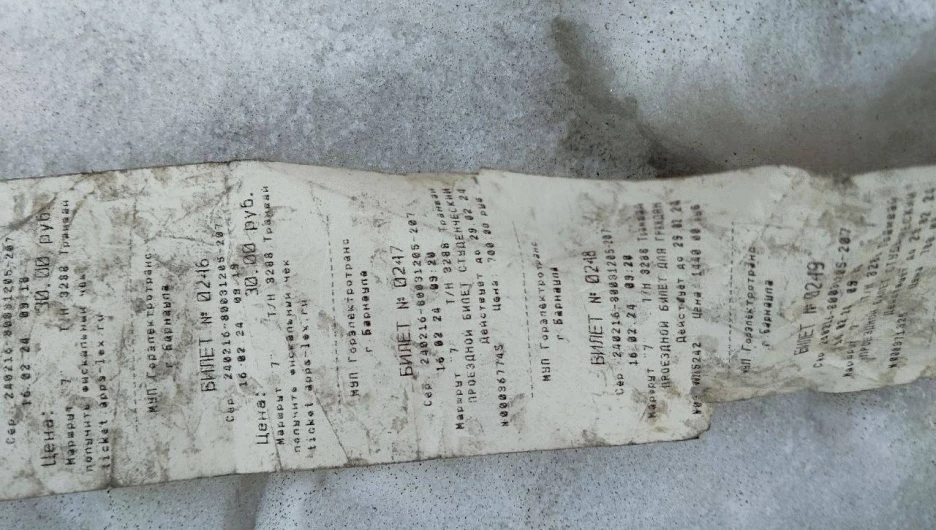 Сер. 240216-80031205-207
16 02 24 09:18
Цена: 30.00 руб.
Маршрут 7 Т/Н 3288 Трамвай
получите фискальный чек
ticket.apps-lex.ru
МУП Горэлектротранс
г Барнаула
БИЛЕТ № 0246
Сер 240216-80031205-207
16 02 24 09:19
Цена: 30.00 руб.
Маршрут 7 Т/Н 3288 Трамвай
получите фискальный чек
ticket apps-lex.ru
МУП Горэлектротранс
г Барнаула
БИЛЕТ № 0247
Сер 240216-80031205-207
16 02 24 09:20
Маршрут 7 Т/Н 3288 Трамвай
ПРОЕЗДНОЙ БИЛЕТ СТУДЕНЧЕСКИЙ
Действует до 29 02 24
N000367745 Цена 700 00 руб
МУП Горэлектротранс
г Барнаула
БИЛЕТ № 0248
Сер 240216-80031205-207
16.02 24 09:20
Маршрут 7 Т/Н 3288 Трамвай
ПРОЕЗДНОЙ БИЛЕТ ДЛЯ ГРАЖДАН
Действует до 29 02 24
Цена 1440 00 руб
МУП Горэлектротранс
г Барнаула
БИЛЕТ № 0249
Маршрут 7
ПРОЕЗДНОЙ БИЛЕТ